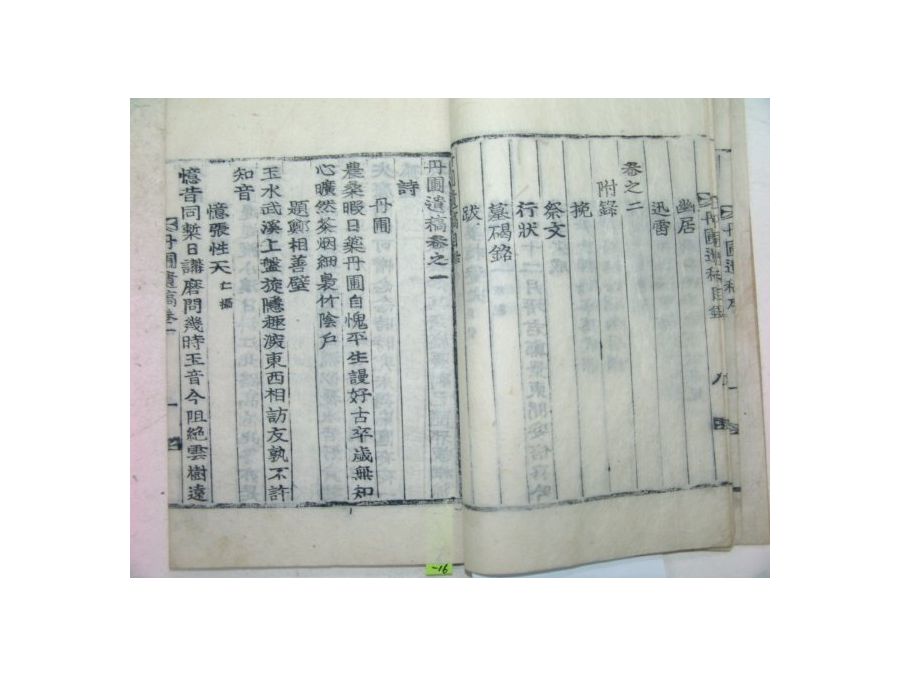 丹圃遺稿目錄
幽居
迅雷
卷之二
附錄
挽
祭文
行狀
墓碣銘
跋
丹圃遺稿卷之一
詩
丹圃
農桑暇日藥丹圃自愧平生謾好古卒歲無知
心曠然茶烟細裊竹陰戶
題鄭相善壁
玉水武溪上盤旋隱趣濃東西相訪友孰不許
知音
憶張性天 仁
憶昔同槧日講磨問幾時玉音今阻絕雲樹遠
丹圃遺稿卷一
一
-16